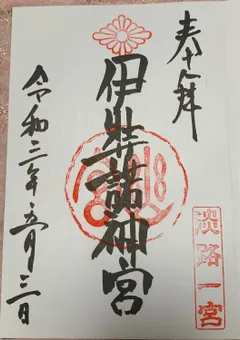 奉拝
伊弉諾神宮
淡路一宮
令和二年五月三日